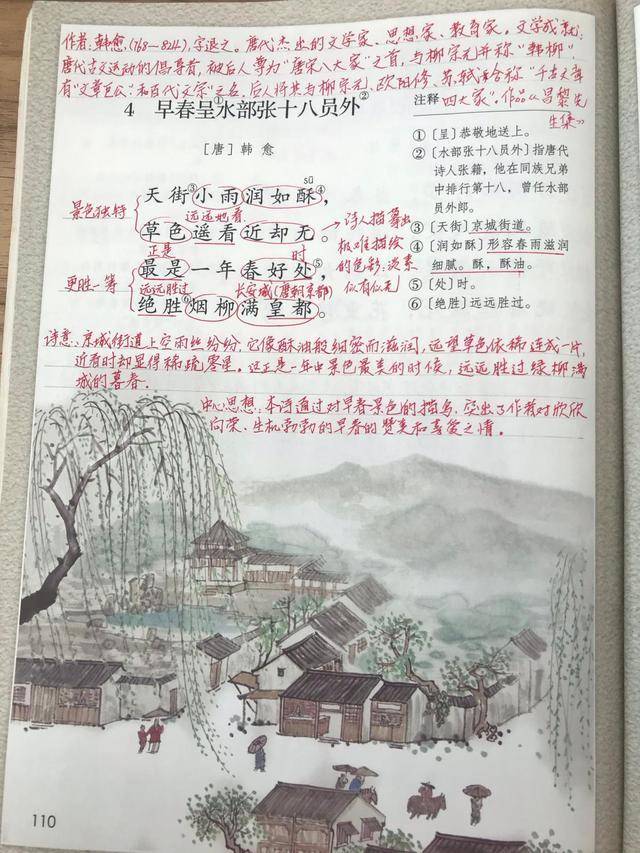 作者:韩愈,(768—824),字退之。唐代杰出的文学家、思想家、教育家。文学成就:
唐代古文运动的倡导者,被后人尊为“唐宋八大家”之首,与柳宗元并称“韩柳”,
有“文章巨公”和百代文宗”之名。后人将其与柳宗元、欧阳修、苏轼合称“千古文章
四大家”。作品《昌黎先
生集》
4 早春呈①水部张十八员外②
[唐]韩 愈
sū
天街③小雨润如酥④,
远远地看
草色遥看近却无。
正是 时
最是一年春好处⑤,
远远胜过 长安城(唐朝京都)
绝胜⑥烟柳满皇都。
景色独特
更胜一筹
诗人描摹出
极难描绘
的色彩:淡素
似有似无
注释
①〔呈〕恭敬地送上。
②〔水部张十八员外〕指唐代
诗人张籍,他在同族兄弟
中排行第十八,曾任水部
员外郎。
③〔天街〕京城街道。
④〔润如酥〕形容春雨滋润
细腻。酥,酥油。
⑤〔处〕时。
⑥〔绝胜〕远远胜过。
诗意:京城街道上空雨丝纷纷,它像酥油般细密而滋润,远望草色依稀连成一片,
近看时却显得稀疏零星。这正是一年中景色最美的时候,远远胜过绿柳满
城的暮春。
中心思想:本诗通过对早春景色的描写,突出了作者对欣欣
向荣、生机勃勃的早春的赞美和喜爱之情。
110